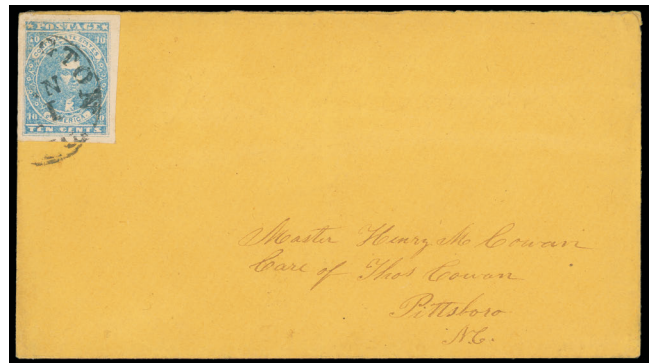 POSTAGE
10 10
AMERICA
10 10
TEN CENTS
Master Henry M Cowan
Care of Thos Cowan
Pittsboro
N.C.